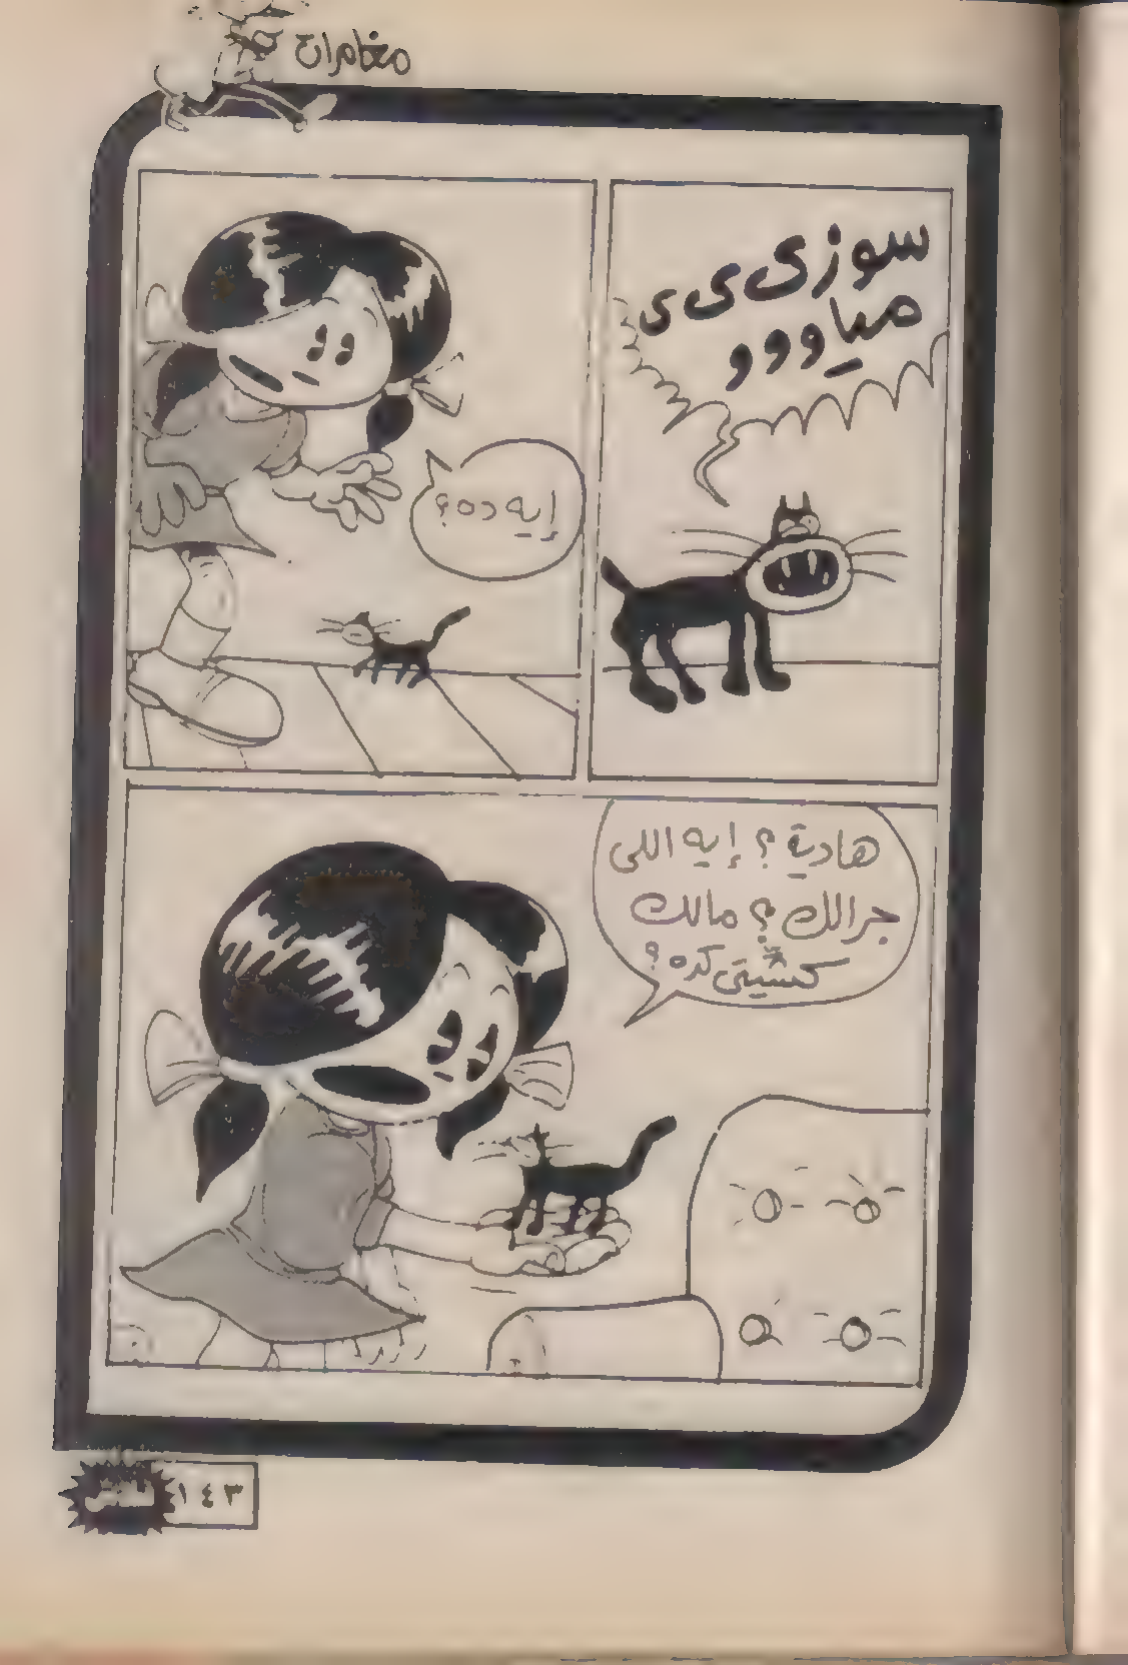 مغامرات
سوزى ى ى
مياووو
إيه ده؟
هادية؟ إيه اللى
جرالك؟ مالك
كشيتى كده؟
فلاش
١٤٣